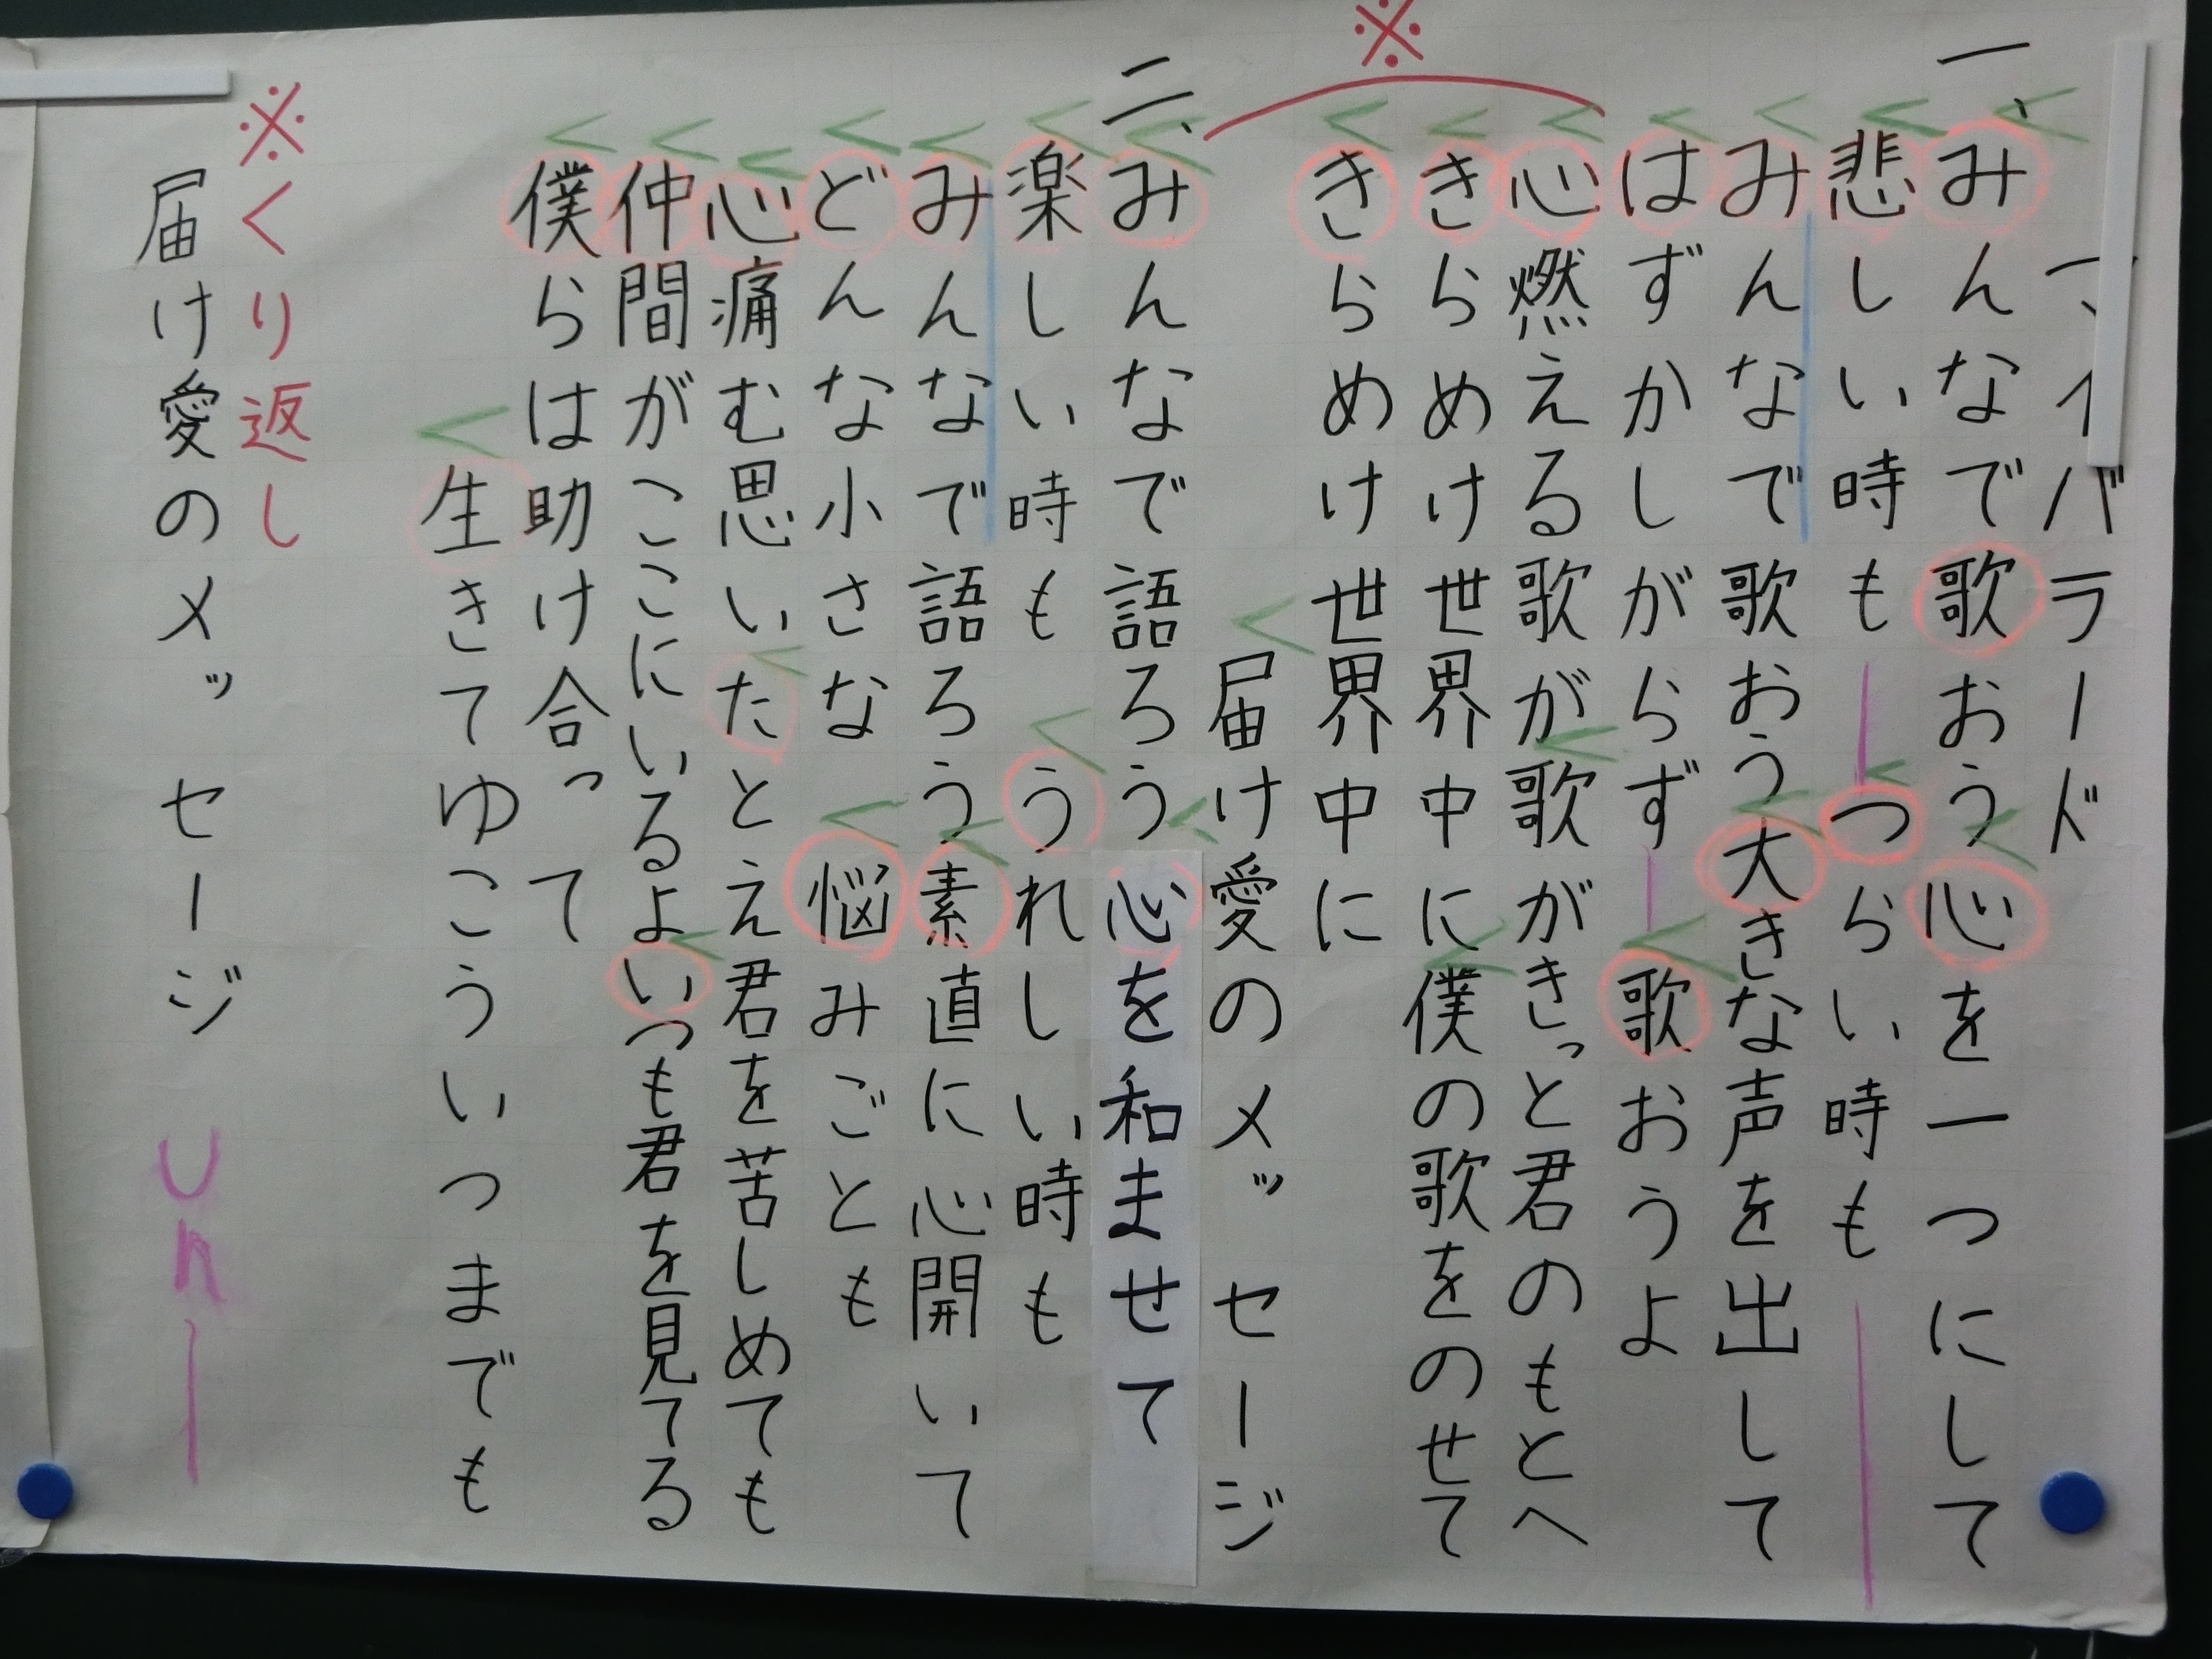 マイバラード
一、みんなで歌おう心を一つにして
悲しい時もつらい時も
みんなで歌おう大きな声を出して
はずかしがらず歌おうよ
※
心燃える歌が歌がきっと君のもとへ
きらめけ世界中に僕の歌をのせて
きらめけ世界中に
届け愛のメッセージ
二、みんなで語ろう心を和ませて
楽しい時もうれしい時も
みんなで語ろう素直に心開いて
どんな小さな悩みごとも
心痛む思いたとえ君を苦しめても
仲間がここにいるよいつも君を見てる
僕らは助け合って
生きてゆこういつまでも
※くり返し
届け愛のメッセージ Un—